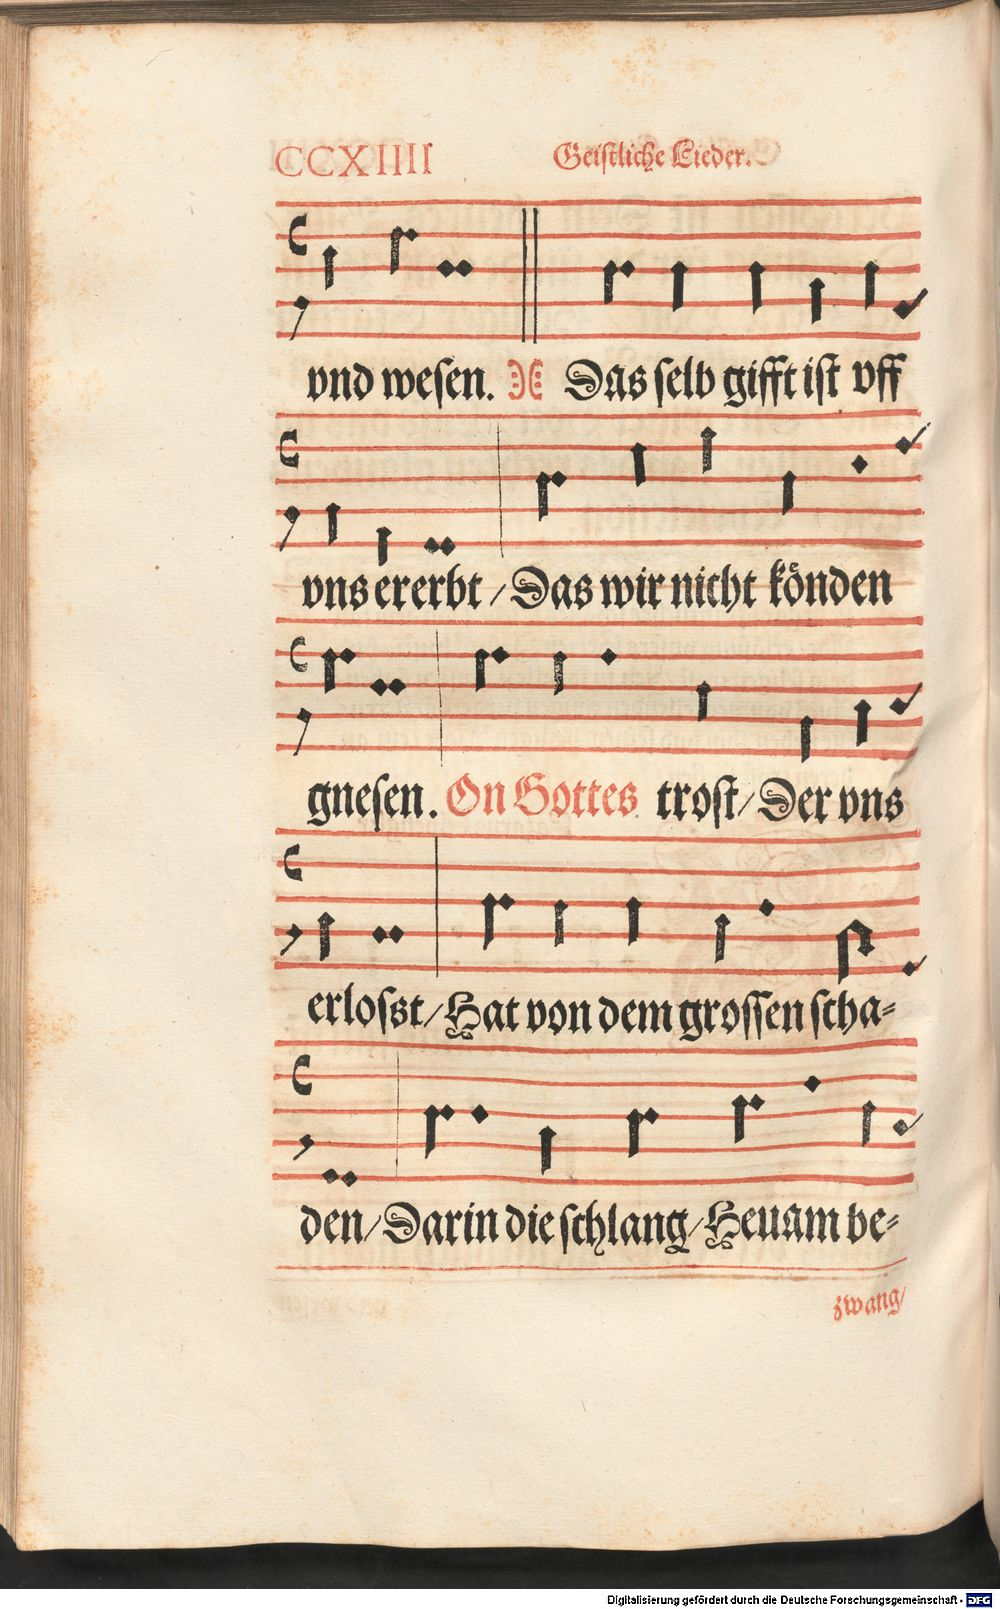 CCXIIII Geistliche Lieder.
vnd wesen. Das selb gifft ist vff
vns ererbt / Das wir nicht köͤnden
gnesen. On Gottes trost / Der vns
erlosst / Hat von dem grossen scha⸗
den / Darin die schlang / Heuam be⸗
zwang /
Digitalisierung gefördert durch die Deutsche Forschungsgemeinschaft - DFG